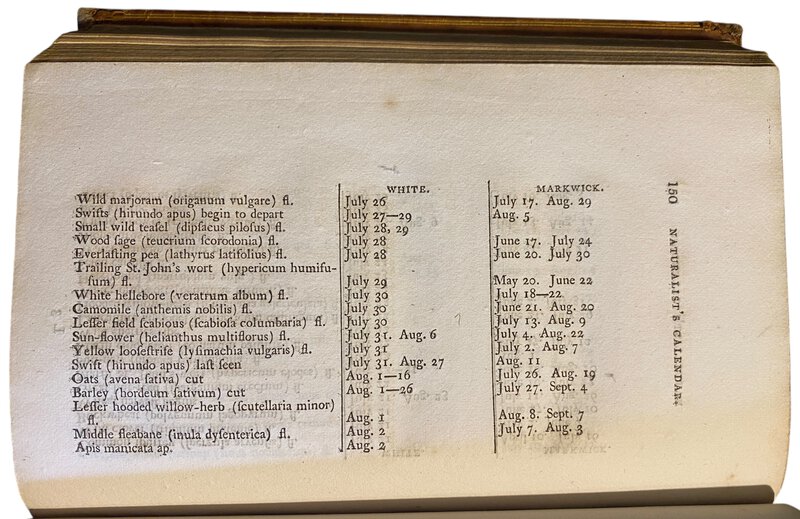 150 NATURALIST'S CALENDAR.
WHITE. MARKWICK.
Wild marjoram (origanum vulgare) fl. July 26 July 17. Aug. 29
Swifts (hirundo apus) begin to depart July 27—29 Aug. 5
Small wild teaſel (dipſacus piloſus) fl. July 28, 29
Wood ſage (teucrium ſcorodonia) fl. July 28 June 17. July 24
Everlaſting pea (lathyrus latifolius) fl. July 28 June 20. July 30
Trailing St. John's wort (hypericum humifu-
ſum) fl. July 29 May 20. June 22
White hellebore (veratrum album) fl. July 30 July 18—22
Camomile (anthemis nobilis) fl. July 30 June 21. Aug. 20
Leſſer field ſcabious (ſcabioſa columbaria) fl. July 30 July 13. Aug. 9
Sun-flower (helianthus multiflorus) fl. July 31. Aug. 6 July 4. Aug. 22
Yellow looſeſtrife (lyſimachia vulgaris) fl. July 31 July 2. Aug. 7
Swift (hirundo apus) laſt ſeen July 31. Aug. 27 Aug. 11
Oats (avena ſativa) cut Aug. 1—16 July 26. Aug. 19
Barley (hordeum ſativum) cut Aug. 1—26 July 27. Sept. 4
Leſſer hooded willow-herb (ſcutellaria minor)
fl. Aug. 1 Aug. 8. Sept. 7
Middle fleabane (inula dyſenterica) fl. Aug. 2 July 7. Aug. 3
Apis manicata ap. Aug. 2